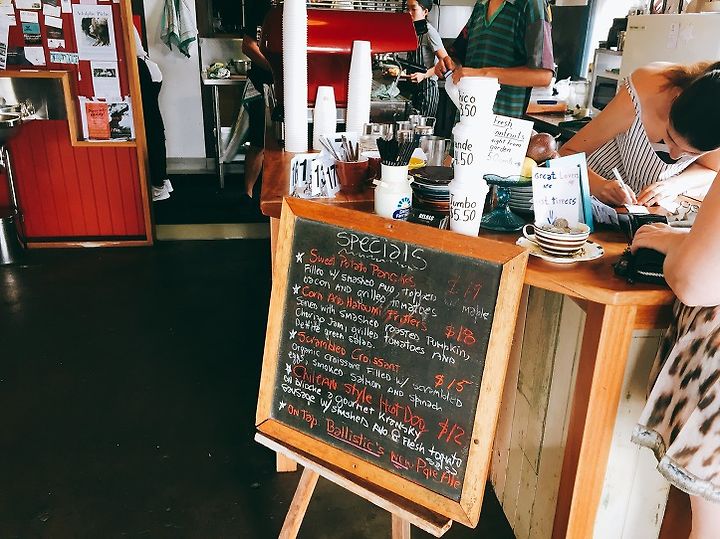 Specials
Sweet Potato Pancakes $19
Filled w/ smashed avo, topped w/ maple
bacon and grilled tomatoes
Corn and Haloumi Fritters $18
Served with smashed roasted pumpkin,
Chorizo jam, grilled tomatoes and
Petite green salad.
Scrambled Croissant $15
Organic croissant filled w/ scrambled
eggs, smoked salmon and spinach
Chilean style Hot Dog $12
on brioche a gourmet kransky
sausage w/ smashed avo & fresh tomato
salsa
On Tap: Ballistic's New Pale Ale
$4.50
$5.50
Fresh
from
garden
Great Lovers
are